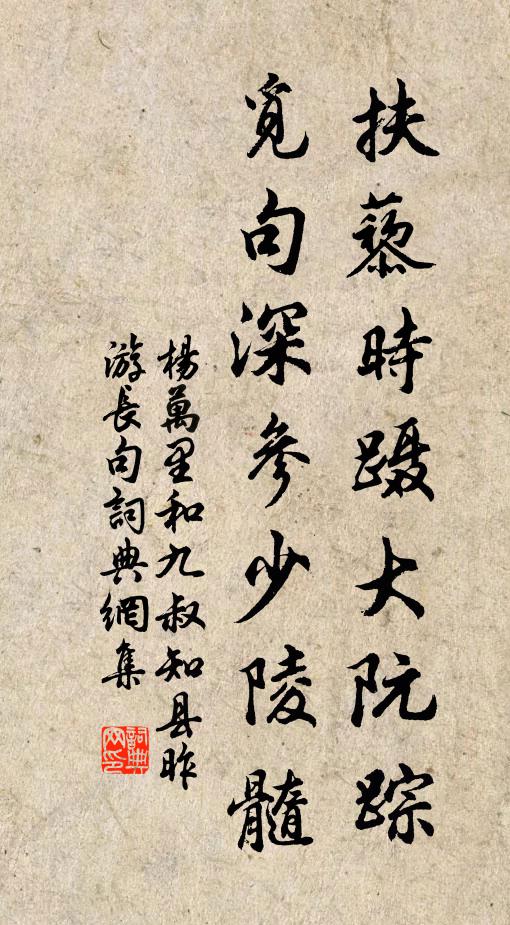 扶藜時蹑大阮踪
覓句深參少陵髓
楊萬里和九叔知县昨
游長句詞典網集
詞典網印